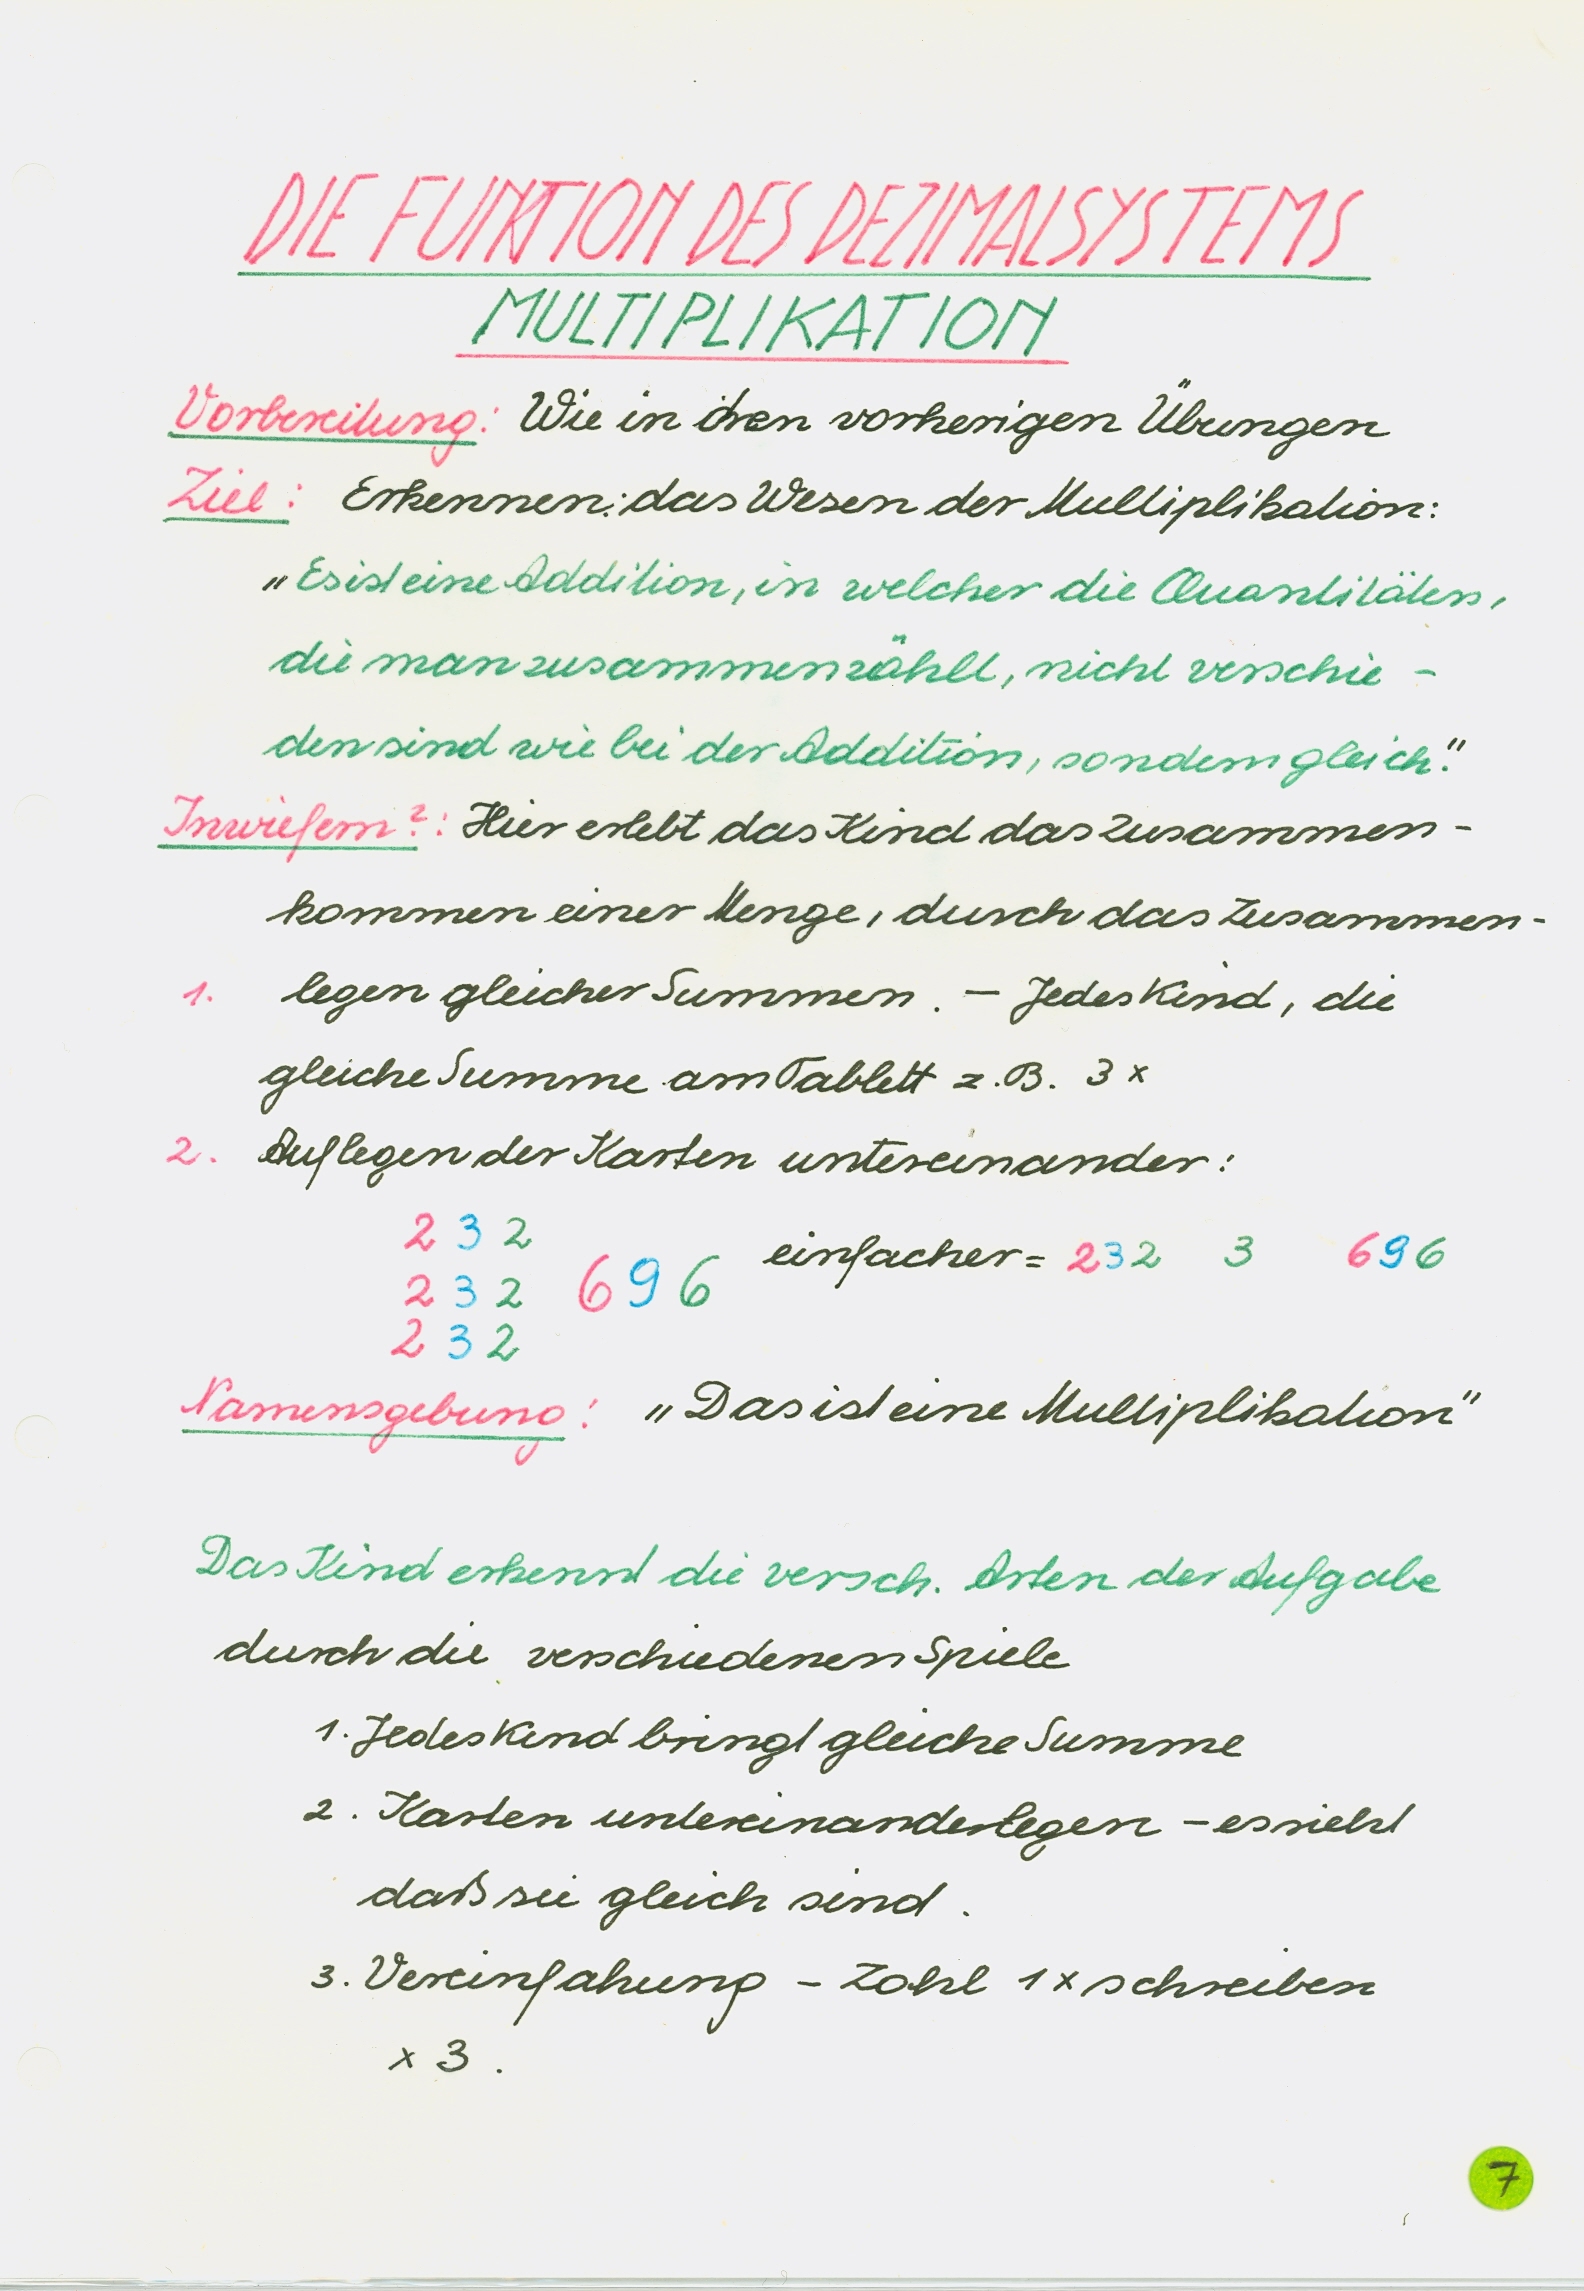 DIE FUNKTION DES DEZIMALSYSTEMS
MULTIPLIKATION
Vorbereitung: Wie in den vorherigen Übungen
Ziel: Erkennen: das Wesen der Multiplikation:
„Es ist eine Addition, in welcher die Quantitäten,
die man zusammenzählt, nicht verschie-
den sind wie bei der Addition, sondern gleich."
Inwiefern?: Hier erlebt das Kind das Zusammen-
kommen einer Menge, durch das Zusammen-
1. legen gleicher Summen. – Jedes Kind, die
gleiche Summe am Tablett z.B. 3 x
2. Auflegen der Karten untereinander:
232
232 696 einfacher = 232 3 696
232
Namensgebung: „Das ist eine Multiplikation"
Das Kind erkennt die versch. Arten der Aufgabe
durch die verschiedenen Spiele
1. Jedes Kind bringt gleiche Summe
2. Karten untereinanderlegen – es sieht
daß sie gleich sind.
3. Vereinfahung – Zahl 1 x schreiben
x 3.
7